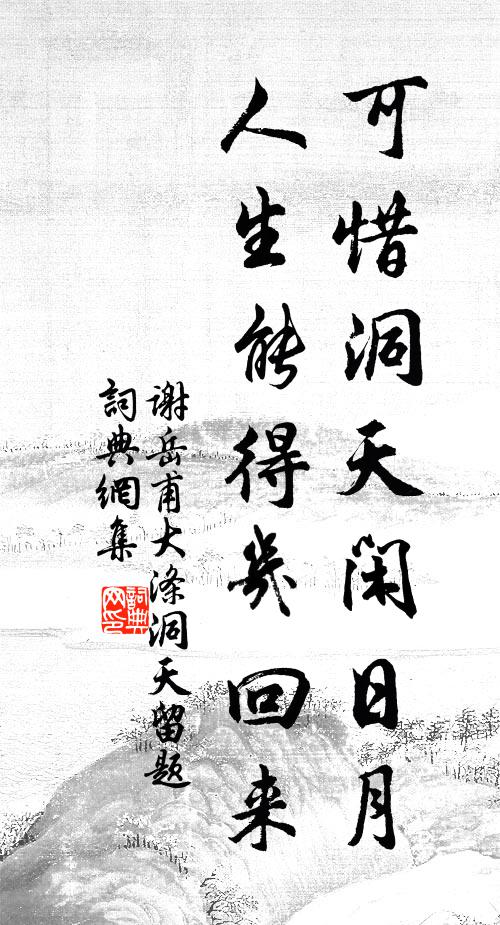 可惜洞天闲日月
人生能得几回来
谢岳甫大涤洞天留题
詞典網集
詞典网印